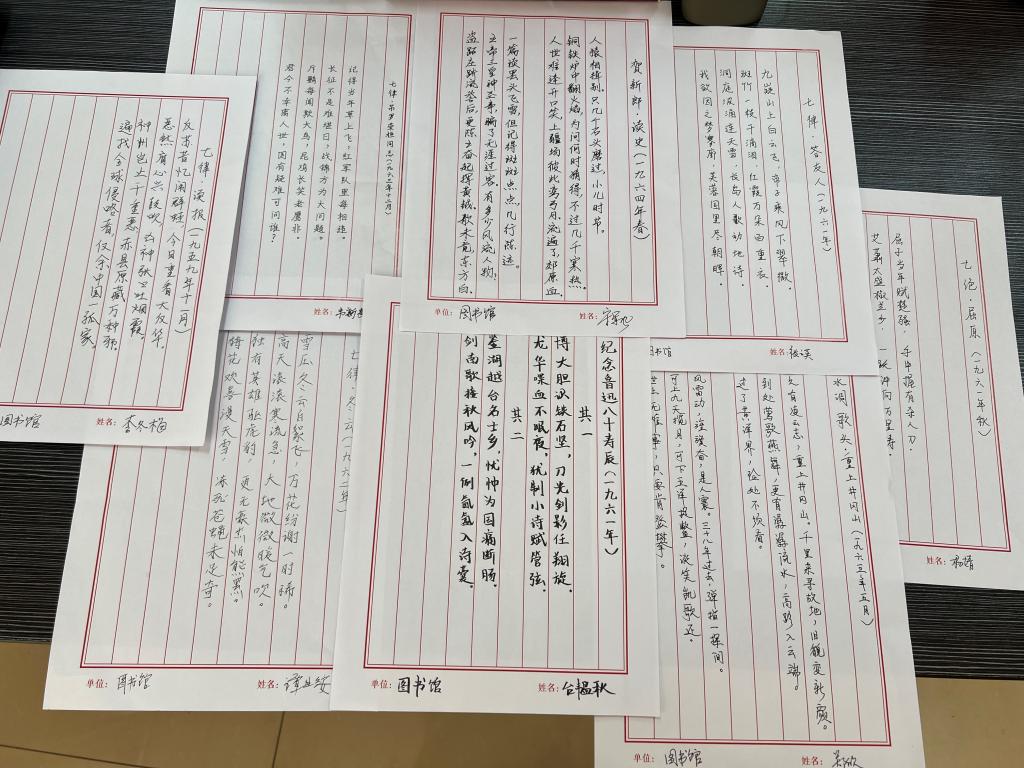 七律·读报(一九五九年十一月)
反苏昔忆闹群蛙,今日重看大反华。
恶煞腐心兴鼓吹,凶神张口吐烟霞。
神州岂止千重恶,赤县原藏万种邪。
遍找全球侵略者,仅余中国一孤家。
图书馆
姓名:李冬梅
七律·吊罗荣桓同志(一九六三年十二月)
记得当年草上飞,红军队里每相违。
长征不是难堪日,战锦方为大问题。
斥鷃每闻欺大鸟,昆鸡长笑老鹰非。
君今不幸离人世,国有疑难可问谁?
姓名:
贺新郎·读史(一九六四年春)
人猿相揖别。只几个石头磨过,小儿时节。
铜铁炉中翻火焰,为问何时猜得,不过几千寒热。
人世难逢开口笑,上疆场彼此弯弓月。流遍了,郊原血。
一篇读罢头飞雪,但记得斑斑点点,几行陈迹。
五帝三皇神圣事,骗了无涯过客。有多少风流人物,
盗跖庄蹻流誉后,更陈王奋起挥黄钺。歌未竟,东方白。
单位:图书馆
姓名:
七律·答友人(一九六一年)
九嶷山上白云飞,帝子乘风下翠微。
斑竹一枝千滴泪,红霞万朵百重衣。
洞庭波涌连天雪,长岛人歌动地诗。
我欲因之梦寥廓,芙蓉国里尽朝晖。
图书馆
姓名:
七绝·屈原(一九六一年秋)
屈子当年赋楚骚,手中握有杀人刀。
艾萧太盛椒兰少,一跃冲向万里涛。
姓名:杨婧
七律·冬云(一九六二年)
雪压冬云白絮飞,万花纷谢一时稀。
高天滚滚寒流急,大地微微暖气吹。
独有英雄驱虎豹,更无豪杰怕熊罴。
梅花欢喜漫天雪,冻死苍蝇未足奇。
单位:图书馆
姓名:
纪念鲁迅八十寿辰(一九六一年)
其一
博大胆识铁石坚,刀光剑影任翔旋。
龙华喋血不眠夜,犹制小诗赋管弦。
其二
鉴湖越台名士乡,忧忡为国痛断肠。
剑南歌接秋风吟,一例氤氲入诗囊。
单位:图书馆
姓名:台韫秋
水调歌头·重上井冈山(一九六五年五月)
久有凌云志,重上井冈山。千里来寻故地,旧貌变新颜。
到处莺歌燕舞,更有潺潺流水,高路入云端。
过了黄洋界,险处不须看。
风雷动,旌旗奋,是人寰。三十八年过去,弹指一挥间。
可上九天揽月,可下五洋捉鳖,谈笑凯歌还。
世上无难事,只要肯登攀。
单位:图书馆
姓名:吴欣